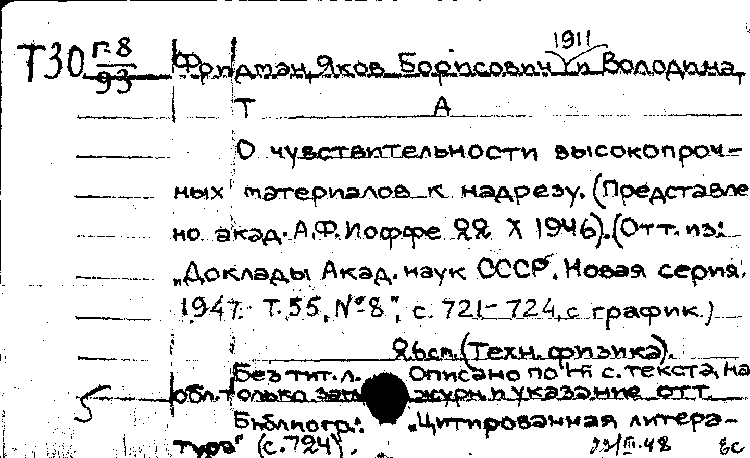 1911
Т30 г-8/93 Фридман, Яков Борисович и Володина,
Т А
О чувствительности высокопроч-
ных материалов к надрезу. (Представле
но акад. А.Ф. Иоффе 22 X 1946). (Отт. из:
"Доклады Акад. наук СССР. Новая серия.
1947. Т. 55, № 8", с. 721-724, с график.)
26 см. (Техн. физика).
Без тит. л. Описано по 1-й с. текста, на
обл. только журн. и указание отт.
Библиогр.: "Цитированная литера-
тура" (с. 724).
III-48